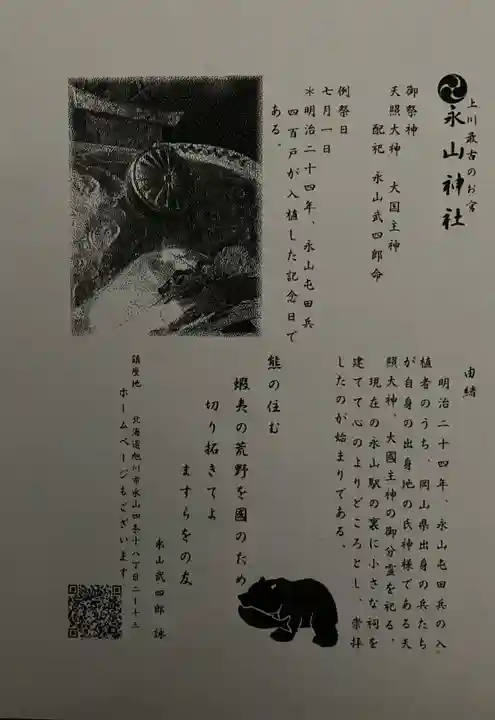 上川最古のお宮
永山神社
御祭神
天照大神 大国主神
配祀 永山武四郎命
例祭日
七月一日
＊明治二十四年、永山屯田兵
四百戸が入植した記念日で
ある。
由緒
明治二十四年、永山屯田兵の入
植者のうち、岡山県出身の兵たち
が自身の出身地の氏神様である天
照大神、大國主神の御分霊を祀る。
現在の永山駅の裏に小さな祠を
建てて心のよりどころとし、崇拝
したのが始まりである。
熊の住む
蝦夷の荒野を國のため
切り拓きてよ
ますらをの友
永山武四郎 詠
鎮座地 北海道旭川市永山四条十八丁目二ー十三
ホームページもございます